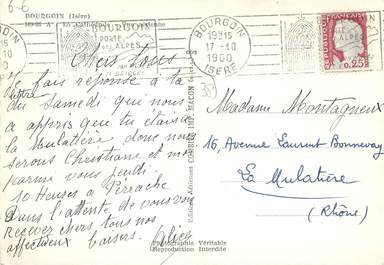 6-6
BOURGOIN (Isère)
BOURGOIN
PORTE
DES ALPES
BOURGOIN
19H15
17-10
1960
ISERE
0,25
Chers tous
Je fais réponse à ta
lettre du Samedi qui nous
a appris que tu étais à
la Mulatière donc nous
serons Christiane et moi
parmi vous jeudi.
10 Heures à Perrache
Dans l'attente de vous
recevez chers tous nos
affectueux baisers. Alice
Editions Aériennes COMBIER IMP. MACON
38
Madame Montagneux
16, Avenue Laurent Bonnevay
La Mulatière
(Rhône)
Photographie Véritable
Reproduction Interdite